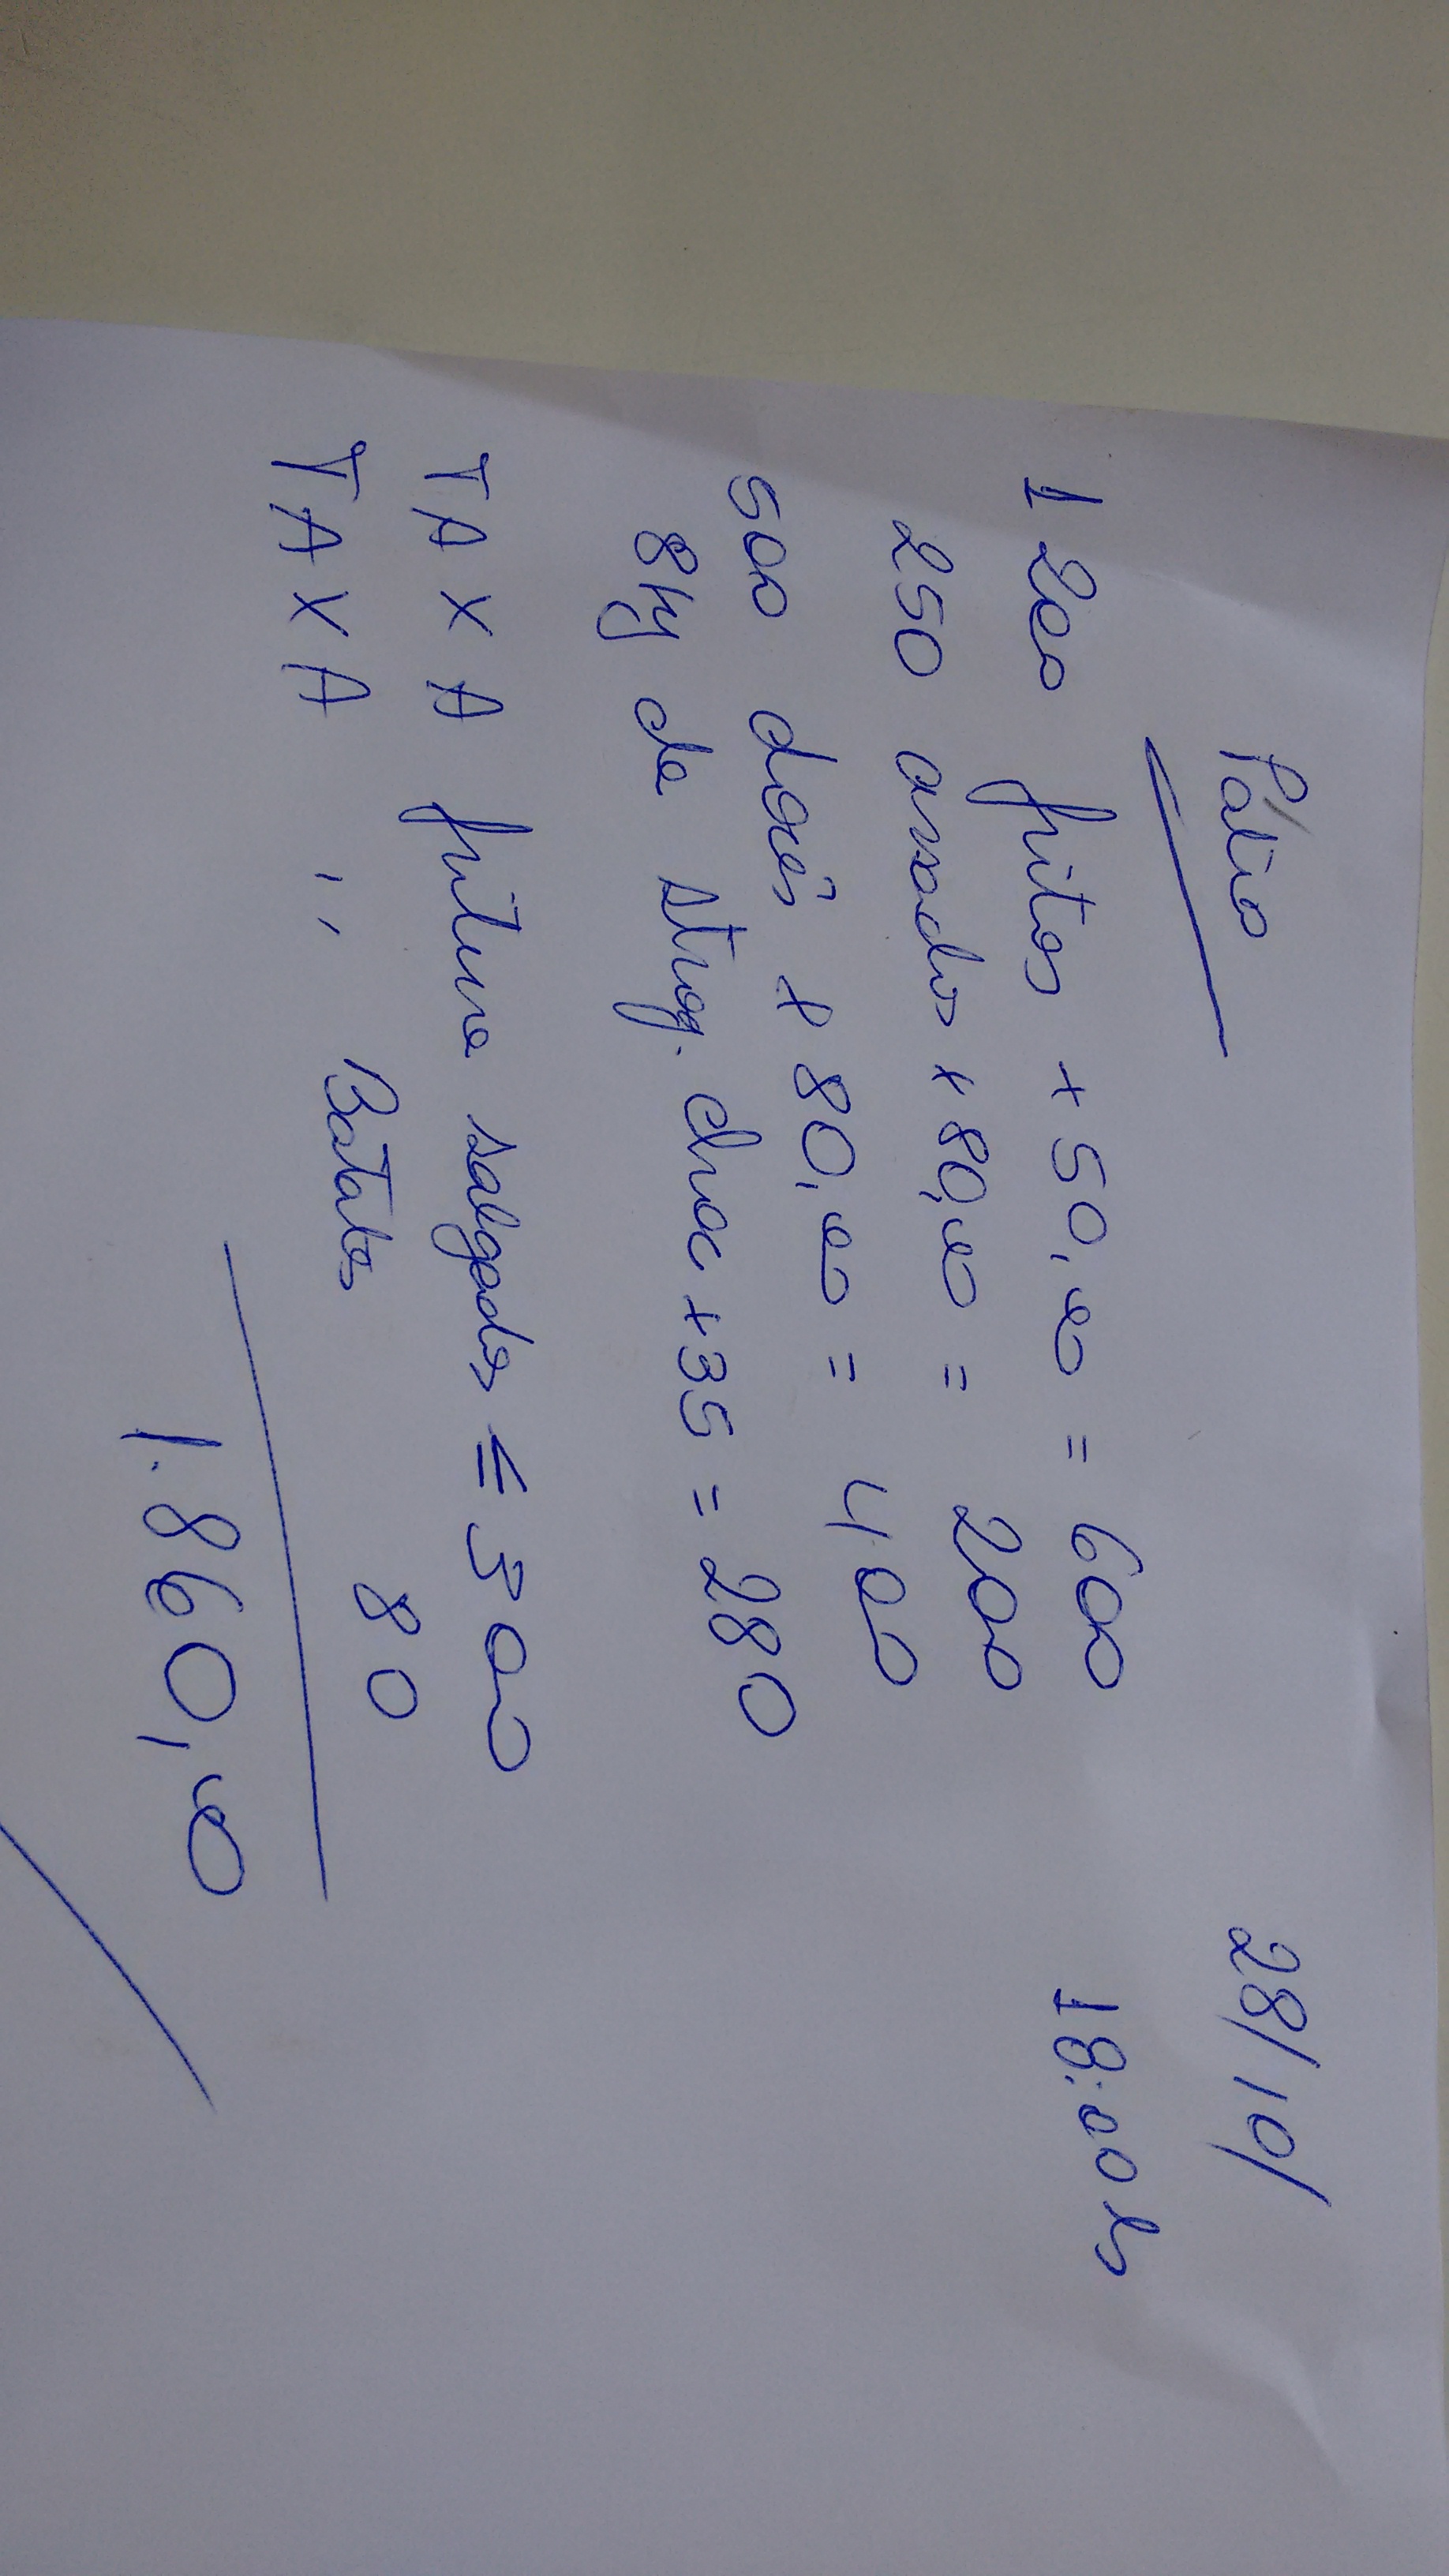 Pátio 28/10/
1200 fritos x 50,00 = 600 18:00hs
250 assados x 80,00 = 200
500 doces x 80,00 = 400
8kg de strog. choc x 35 = 280
TAXA fritura salgados = 300
TAXA '' Batatas 80
1.860,00